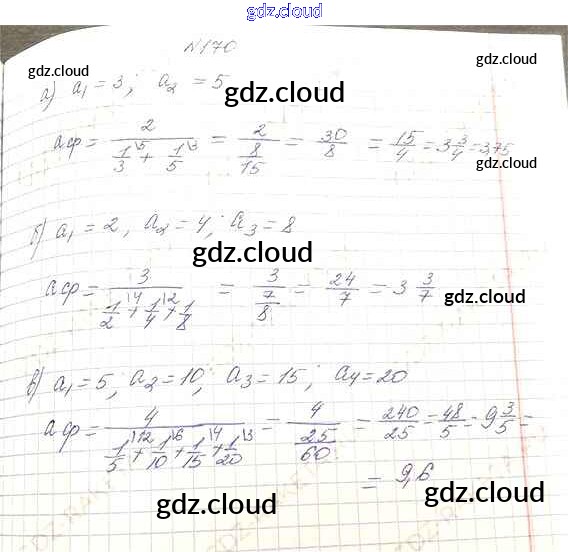 gdz.cloud
№170
gdz.cloud gdz.cloud
а) a₁ = 3; a₂ = 5
gdz.cloud
aф = 2/(1/3 + 1/5) = 2/(8/15) = 30/8 = 15/4 = 3 3/4 = 3,75
gdz.cloud
б) a₁ = 2, a₂ = 4; a₃ = 8
gdz.cloud
aф = 3/(1/2 + 1/4 + 1/8) = 3/(7/8) = 24/7 = 3 3/7
gdz.cloud
в) a₁ = 5; a₂ = 10; a₃ = 15; a4 = 20
aф = 4/(1/5 + 1/10 + 1/15 + 1/20) = 4/(25/60) = 240/25 = 48/5 = 9 3/5 =
= 9,6
gdz.cloud gdz.cloud